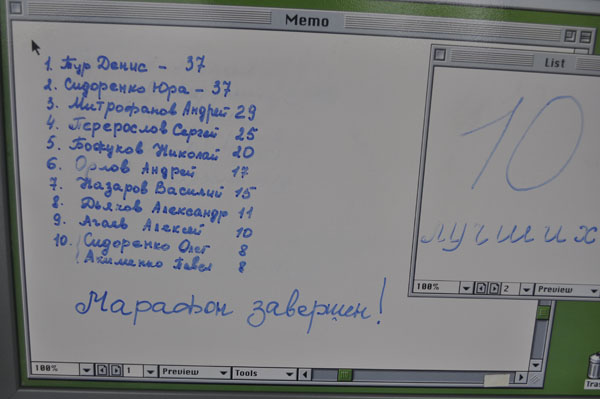 Memo
1. Тур Денис - 37
2. Сидоренко Юра - 37
3. Митрофанов Андрей 29
4. Перерослов Сергей 25
5. Божуков Николай 20
6. Орлов Андрей 17
7. Назаров Василий 15
8. Дьяков Александр 11
9. Агаев Алексей 10
10. Сидоренко Олег 8
Акименко Павел 8
Марафон завершен!
100%
1
Preview
Tools
List
10
лучших
100%
2
Preview